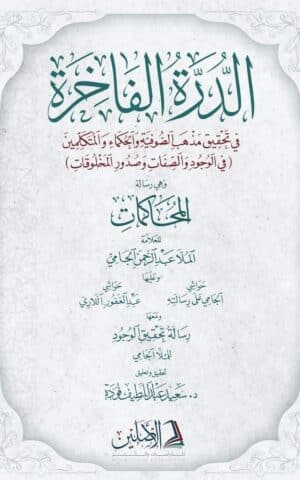 الدرة الفاخرة
في تحقيق مذهب الصوفية والحكماء والمتكلمين
(في الوجود والصفات وصدور المخلوقات)
وهي رسالة
المحاكمات
للعلامة
الملا عبد الرحمن الجامي
وعليها
حواشي حواشي
الجامي على رسالته عبد الغفور اللاري
ومعها
رسالة تحقيق الوجود
للملا الجامي
تحقيق وتعليق
د. سعيد عبد اللطيف فودة
الأصلين
للدراسات والنشر